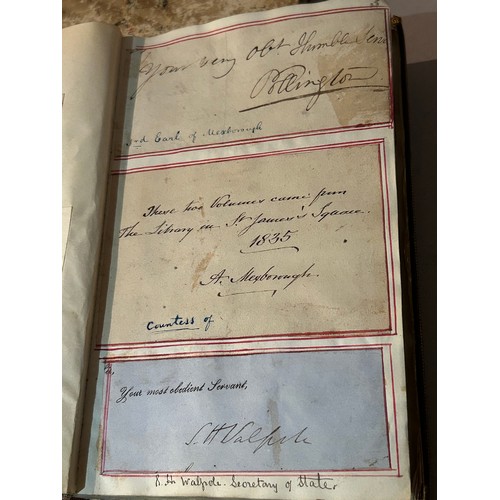 Your very obt Humble Serv
Pollington
3rd Earl of Mexborough
These two Volumes came from
The Library in St James's Square.
1835
A. Mexborough.
Countess of
Your most obedient Servant,
S. H Walpole
S. H. Walpole. Secretary of State.